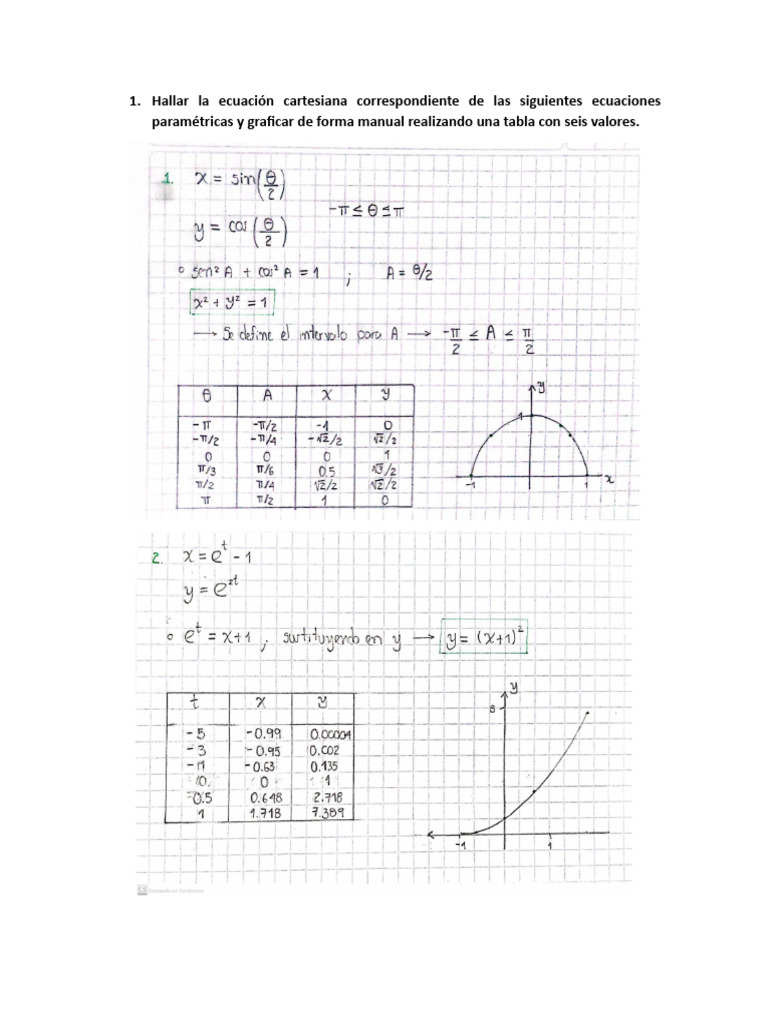 1. Hallar la ecuación cartesiana correspondiente de las siguientes ecuaciones
paramétricas y graficar de forma manual realizando una tabla con seis valores.
1. x = sin(θ/2)
-π ≤ θ ≤ π
y = cos(θ/2)
○ sen² A + cos² A = 1 ; A = θ/2
x² + y² = 1
→ Se define el intervalo para A → -π/2 ≤ A ≤ π/2
θ A x y
-π -π/2 -1 0
-π/2 -π/4 -√2/2 √2/2
0 0 0 1
π/3 π/6 0.5 √3/2
π/2 π/4 √2/2 √2/2
π π/2 1 0
y
1
-1 1 x
2. x = e^t - 1
y = e^2t
○ e^t = x+1 ; sustituyendo en y → y = (x+1)²
t x y
-5 -0.99 0.00004
-3 -0.95 0.002
-1 -0.63 0.135
0 0 1
-0.5 0.648 2.718
1 1.718 7.389
y
8
-1 1